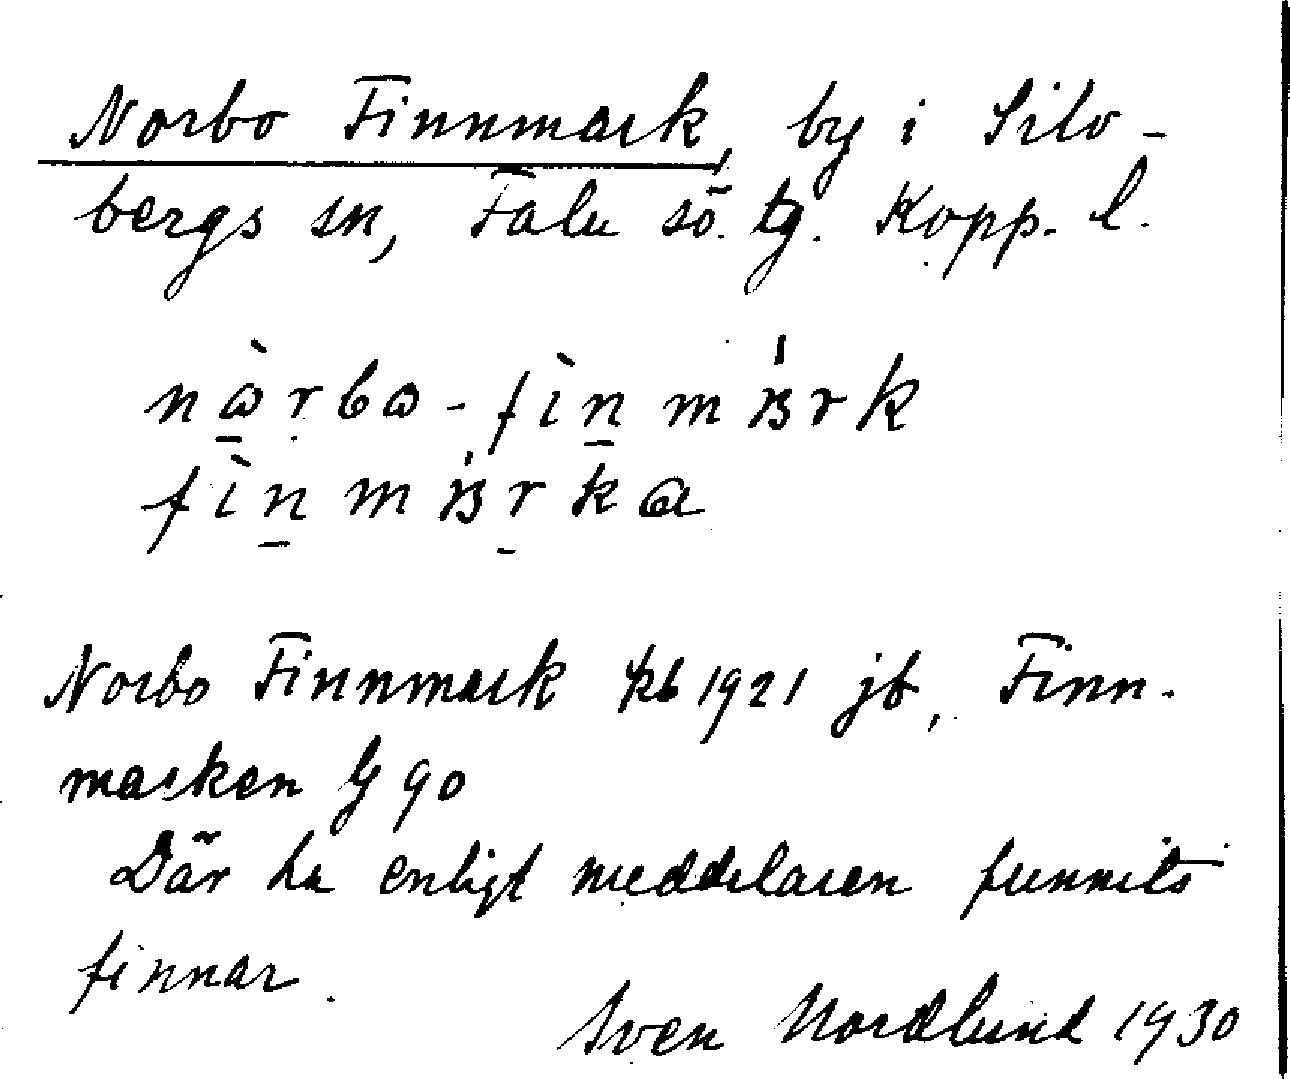 Norbo Finnmark, by i Silv-
bergs sn, Falu sö. tg. Kopp. l.
Norbo Finnmark kb 1921 jb, Finn-
marken G 90
Där ha enligt meddelaren funnits
finnar.
Sven Nordlund 1930